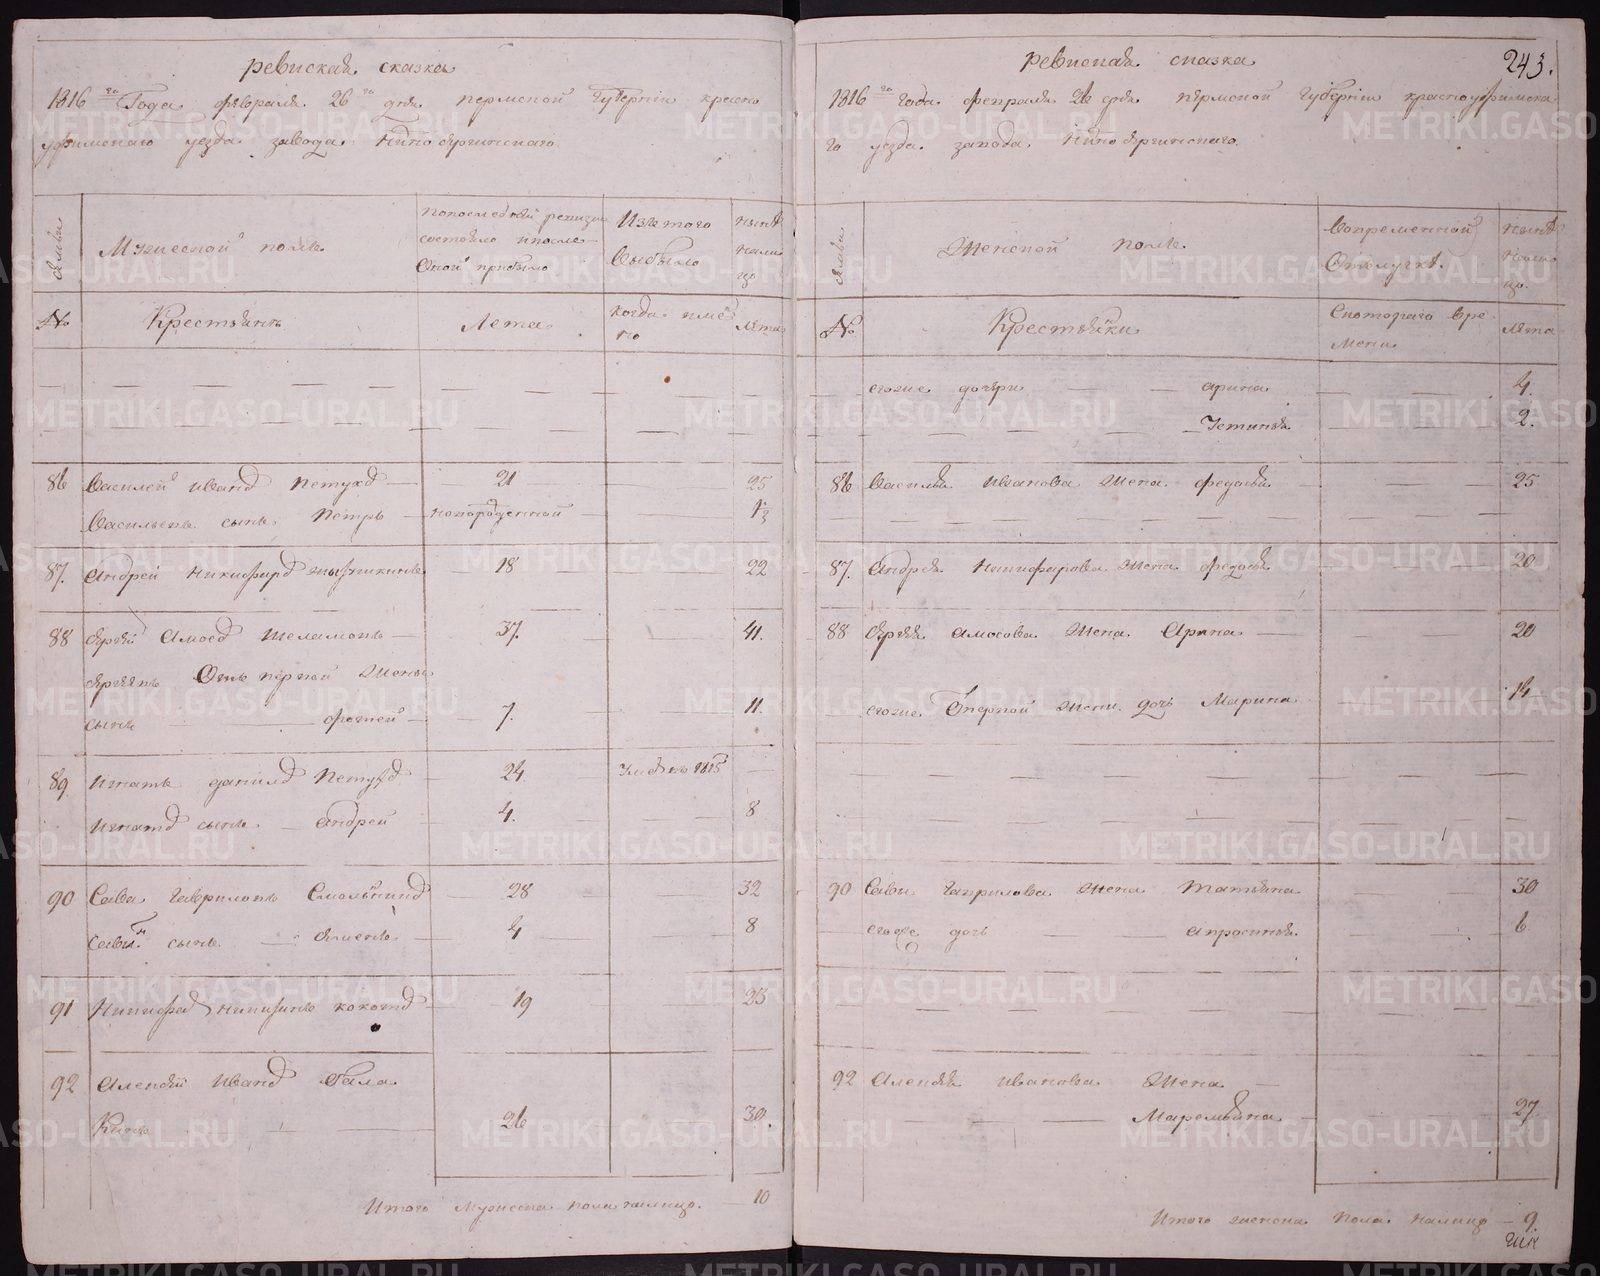 ревиская сказка
1816 го Года февраля 26 го дня пермской Губернии красно
уфимскаго уезда завода
Семьи
Мужеской полъ
попоследней ревизии
состояло ипосле
Оной прибыло
Изъ того
Выбыло
ныне
нали
цо
№
Крестьянъ
Лета
Когда имен
но
лета
86 Василей Иванов Петухов 21 25
Васильевъ сынъ Петръ новорожденной
87. Андрей Никифоров 18 22
88 Сергей Амосов 37. 41.
Сергеевъ Отъ первой жены
сынъ 7. 11.
89. Игнатъ данилов Петухов 24 1815
Игнатов сынъ Андрей 4. 8
90 Сава Гавриловъ 28 32
Савы сынъ 4 8
91 19 23
92 Алексей Иванов Бала
Кинъ 26 30.
Итого Мужеска пола налицо 10
ревиская сказка
243.
1816 го года февраля 26 дня пермской Губернии красноуфимска
го уезда завода
Семьи
Женской полъ
Вовременной
Отлучке
ныне
нали
цо
№
Крестьянки
Скотораго вре
мени
лета
егоже дочери арина 4.
Устинья 2.
86 Василья Иванова жена федосья 25
87. Андрея Никифорова жена федосья 20
88 Сергея Амосова жена Арина 20
егоже первой жены дочь Марина 14
90 Савы Гаврилова жена Татьяна 30
егоже дочь апросинья 6
92 Алексея Иванова жена
Маремьяна 27
Итого женска пола налицо 9.
METRIKI.GASO-URAL.RU